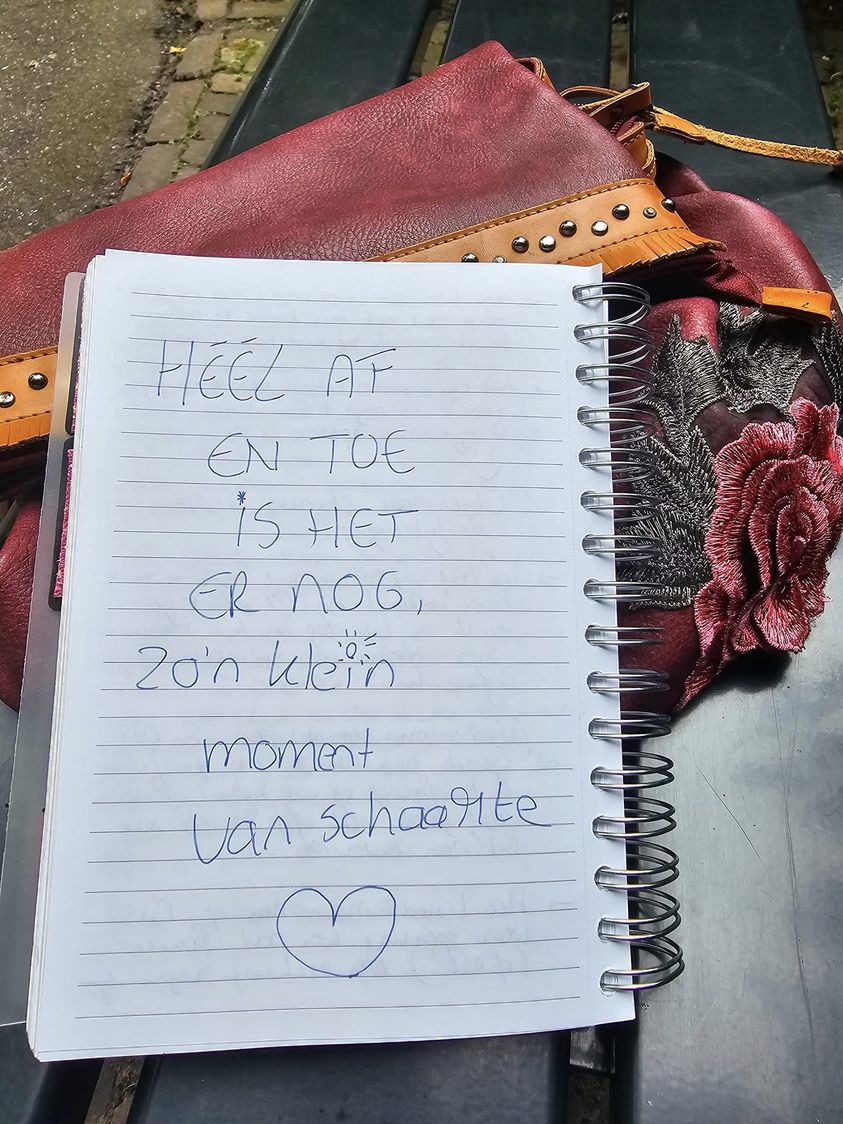 HÉÉL AF
EN TOE
iS HET
ER NOG,
zo'n klein
moment
van schaarte